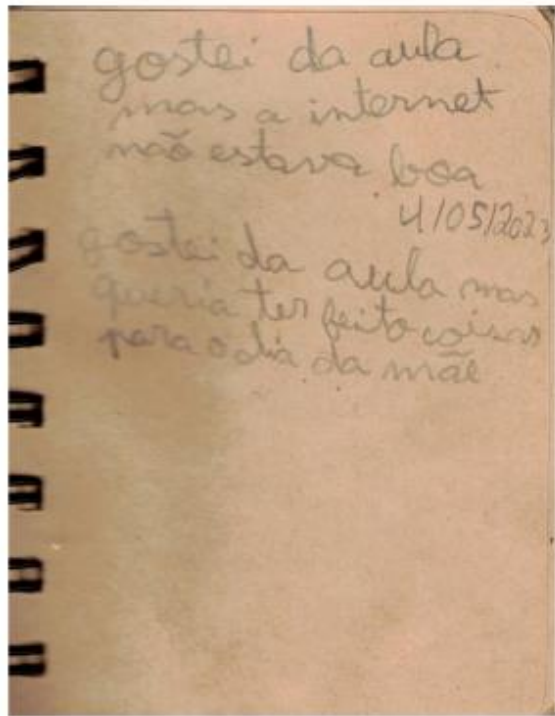 gostei da aula
mas a internet
não estava boa
4/05/2023
gostei da aula mas
queria ter feito coisas
para o dia da mãe